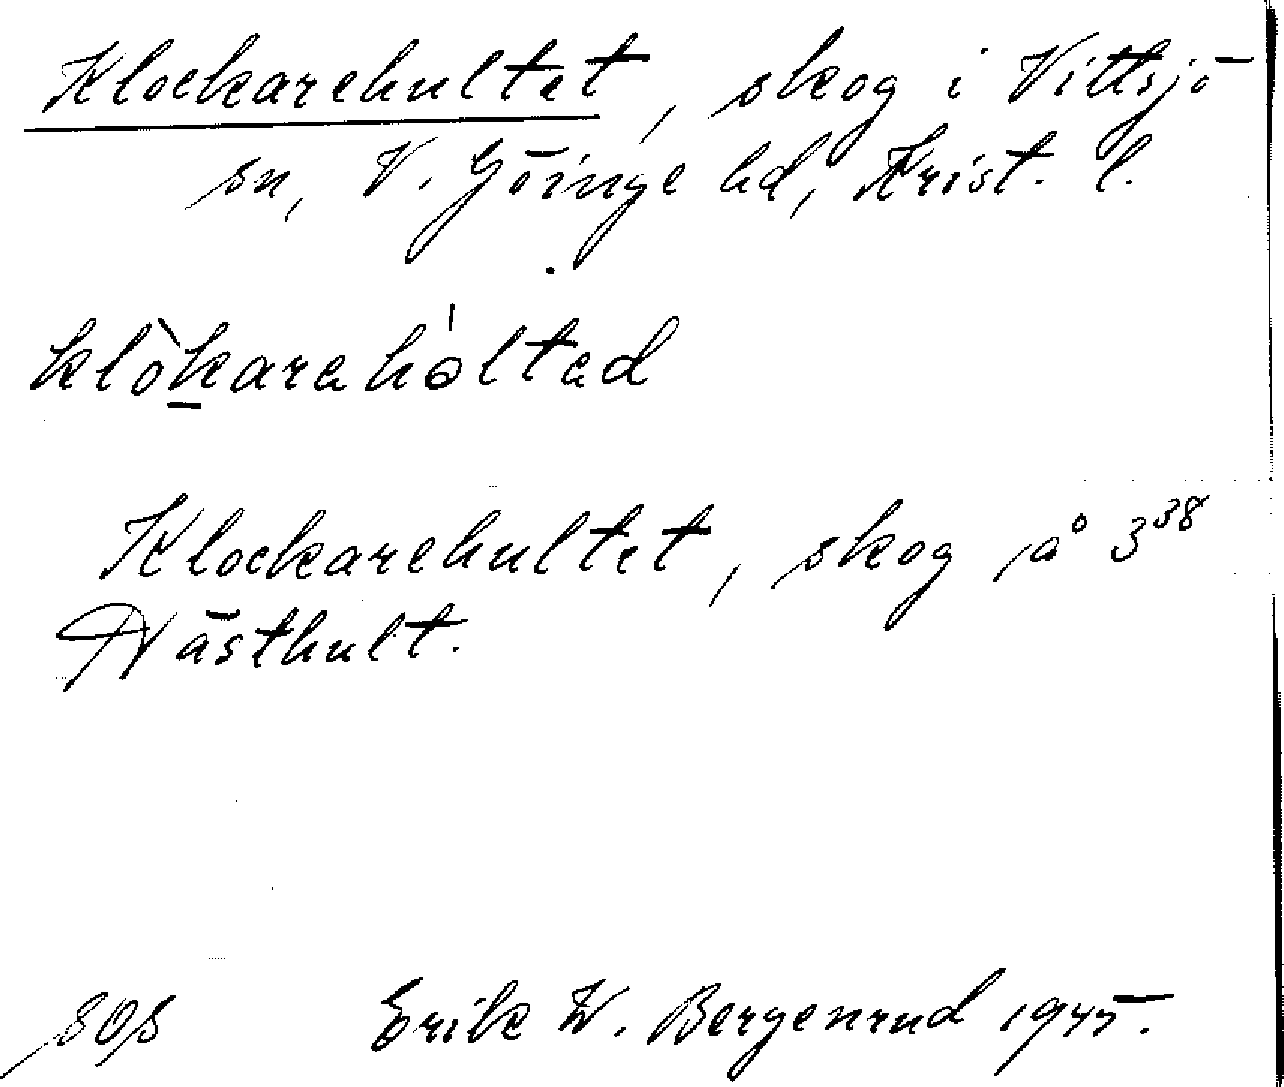 Klockarehultet, skog i Vittsjö
sn, V. Göinge hd, Krist. l.
klòkarahóltad
Klockarehultet, skog på 3³⁸
Västhult.
Erik W. Bergenrud 1945.